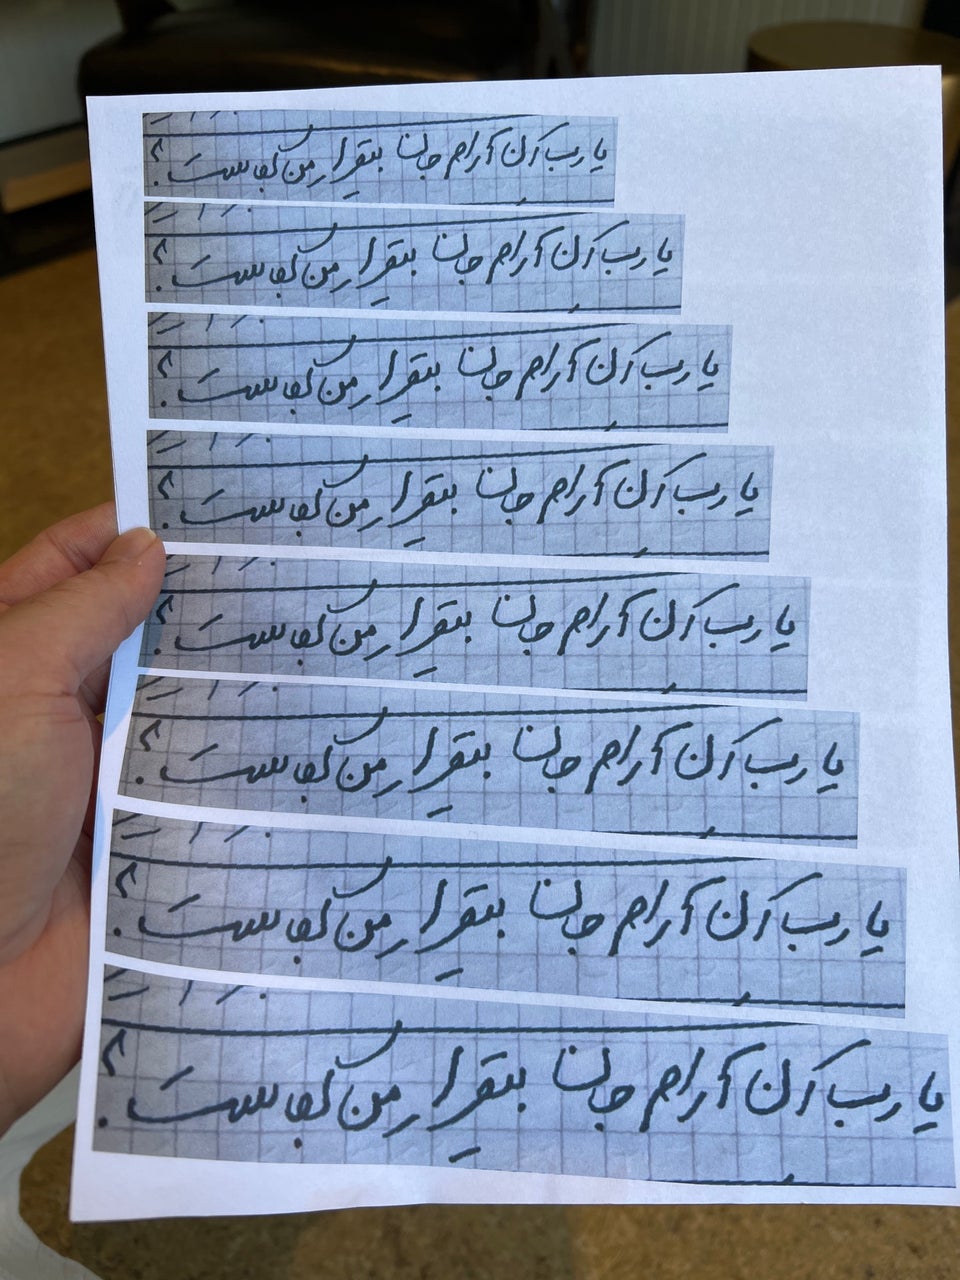 یا رب آن آرام جان بیقرار من کجاست؟
یا رب آن آرام جان بیقرار من کجاست؟
یا رب آن آرام جان بیقرار من کجاست؟
یا رب آن آرام جان بیقرار من کجاست؟
یا رب آن آرام جان بیقرار من کجاست؟
یا رب آن آرام جان بیقرار من کجاست؟
یا رب آن آرام جان بیقرار من کجاست؟
یا رب آن آرام جان بیقرار من کجاست؟